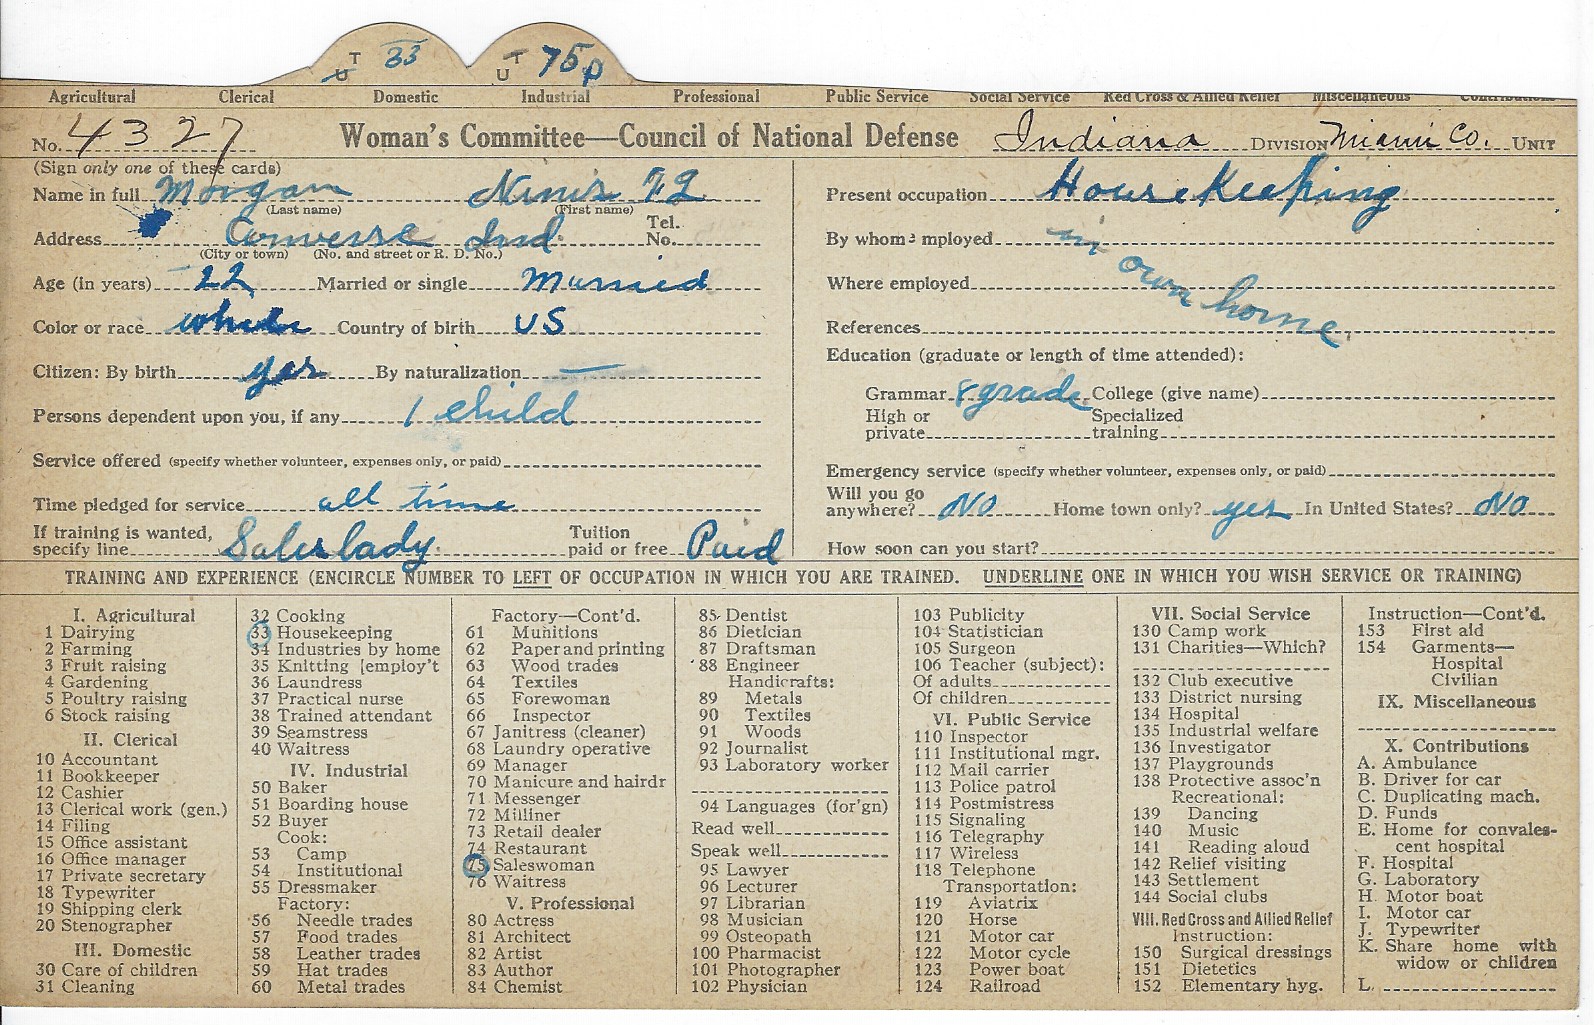 T 33 T 75p
U U
Agricultural Clerical Domestic Industrial Professional Public Service Social Service Red Cross & Allied Relief Miscellaneous Contributions
No. 4327 Woman's Committee—Council of National Defense Indiana DIVISION Miami Co. UNIT
(Sign only one of these cards)
Name in full Morgan
(Last name) (First name)
Address Converse Ind. Tel. No.
(City or town) (No. and street or R. D. No.)
Age (in years) 22 Married or single Married
Color or race white Country of birth US
Citizen: By birth yes By naturalization —
Persons dependent upon you, if any 1 child
Service offered (specify whether volunteer, expenses only, or paid)
Time pledged for service all time
If training is wanted, specify line Saleslady. Tuition paid or free Paid
Present occupation House Keeping
By whom employed in
Where employed own
References home.
Education (graduate or length of time attended):
Grammar 8 grade College (give name)
High or private Specialized training
Emergency service (specify whether volunteer, expenses only, or paid)
Will you go anywhere? No Home town only? yes In United States? No
How soon can you start?
TRAINING AND EXPERIENCE (ENCIRCLE NUMBER TO LEFT OF OCCUPATION IN WHICH YOU ARE TRAINED. UNDERLINE ONE IN WHICH YOU WISH SERVICE OR TRAINING)
I. Agricultural
1 Dairying
2 Farming
3 Fruit raising
4 Gardening
5 Poultry raising
6 Stock raising
II. Clerical
10 Accountant
11 Bookkeeper
12 Cashier
13 Clerical work (gen.)
14 Filing
15 Office assistant
16 Office manager
17 Private secretary
18 Typewriter
19 Shipping clerk
20 Stenographer
III. Domestic
30 Care of children
31 Cleaning
32 Cooking
33 Housekeeping
34 Industries by home
35 Knitting [employ't
36 Laundress
37 Practical nurse
38 Trained attendant
39 Seamstress
40 Waitress
IV. Industrial
50 Baker
51 Boarding house
52 Buyer
Cook:
53 Camp
54 Institutional
55 Dressmaker
Factory:
56 Needle trades
57 Food trades
58 Leather trades
59 Hat trades
60 Metal trades
Factory—Cont'd.
61 Munitions
62 Paper and printing
63 Wood trades
64 Textiles
65 Forewoman
66 Inspector
67 Janitress (cleaner)
68 Laundry operative
69 Manager
70 Manicure and hairdr
71 Messenger
72 Milliner
73 Retail dealer
74 Restaurant
75 Saleswoman
76 Waitress
V. Professional
80 Actress
81 Architect
82 Artist
83 Author
84 Chemist
85 Dentist
86 Dietician
87 Draftsman
88 Engineer
Handicrafts:
89 Metals
90 Textiles
91 Woods
92 Journalist
93 Laboratory worker
94 Languages (for'gn)
Read well
Speak well
95 Lawyer
96 Lecturer
97 Librarian
98 Musician
99 Osteopath
100 Pharmacist
101 Photographer
102 Physician
103 Publicity
104 Statistician
105 Surgeon
106 Teacher (subject):
Of adults
Of children
VI. Public Service
110 Inspector
111 Institutional mgr.
112 Mail carrier
113 Police patrol
114 Postmistress
115 Signaling
116 Telegraphy
117 Wireless
118 Telephone
Transportation:
119 Aviatrix
120 Horse
121 Motor car
122 Motor cycle
123 Power boat
124 Railroad
VII. Social Service
130 Camp work
131 Charities—Which?
132 Club executive
133 District nursing
134 Hospital
135 Industrial welfare
136 Investigator
137 Playgrounds
138 Protective assoc'n
Recreational:
139 Dancing
140 Music
141 Reading aloud
142 Relief visiting
143 Settlement
144 Social clubs
VIII. Red Cross and Allied Relief
Instruction:
150 Surgical dressings
151 Dietetics
152 Elementary hyg.
Instruction—Cont'd.
153 First aid
154 Garments—
Hospital
Civilian
IX. Miscellaneous
X. Contributions
A. Ambulance
B. Driver for car
C. Duplicating mach.
D. Funds
E. Home for convales-
cent hospital
F. Hospital
G. Laboratory
H. Motor boat
I. Motor car
J. Typewriter
K. Share home with
widow or children
L.